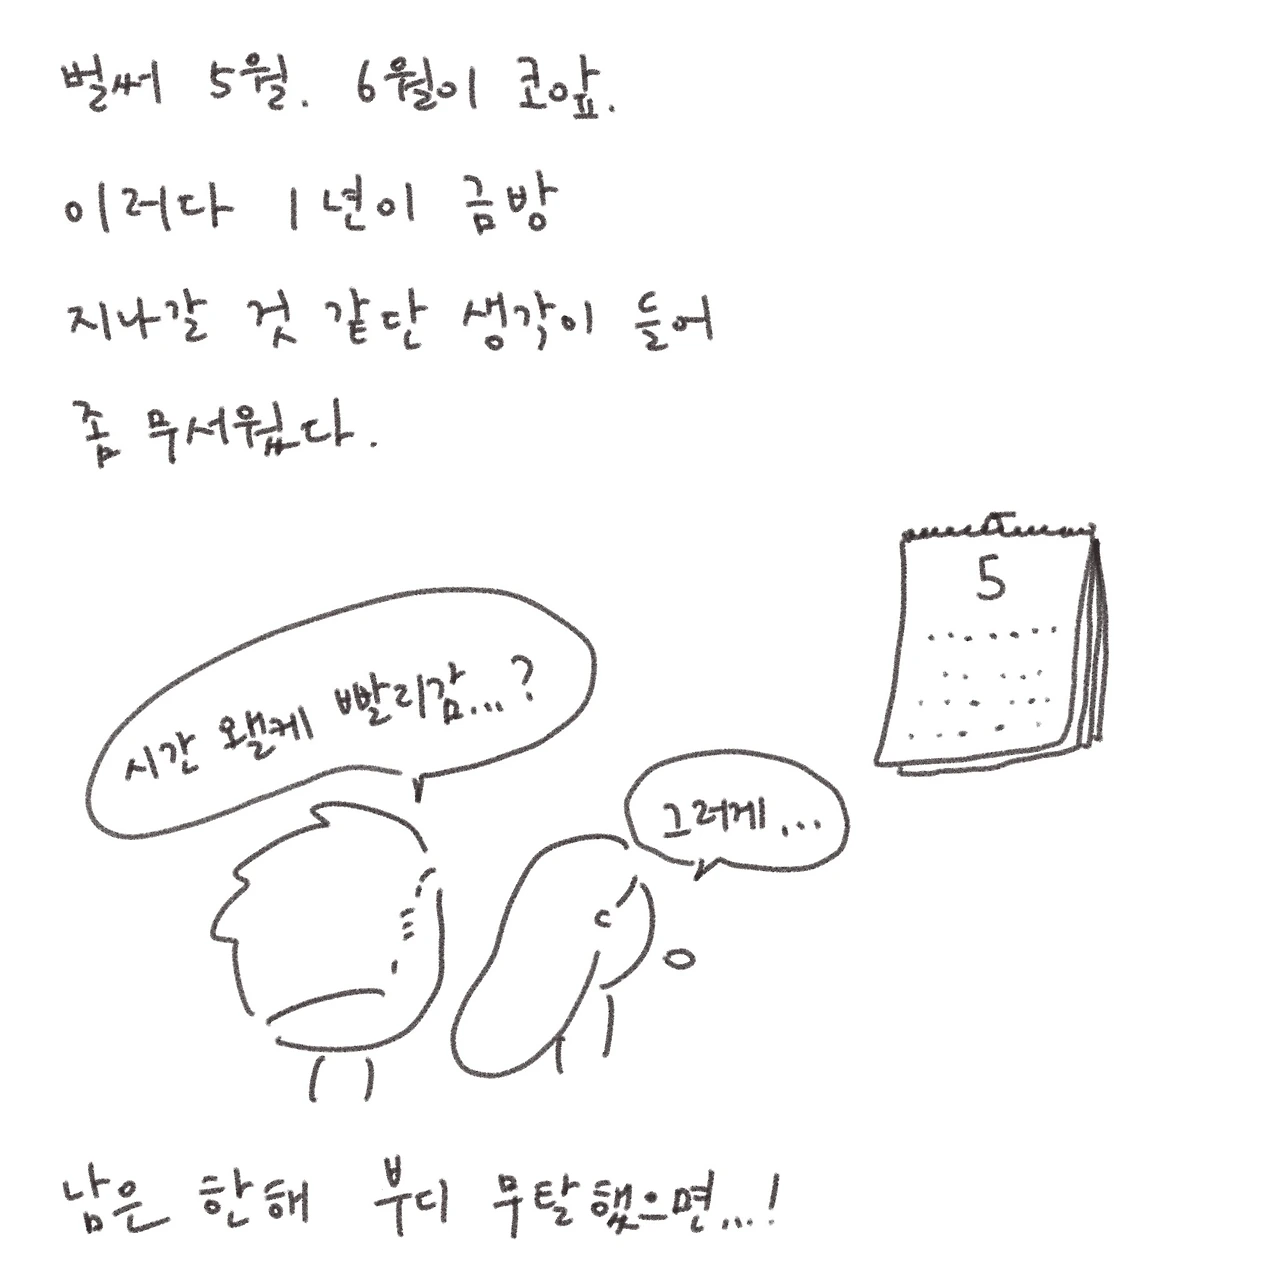 벌써 5월. 6월이 코앞.
이러다 1년이 금방
지나갈 것 같단 생각이 들어
좀 무서웠다.
5
시간 왤케 빨리감...?
그러게...
남은 한해 부디 무탈했으면...!